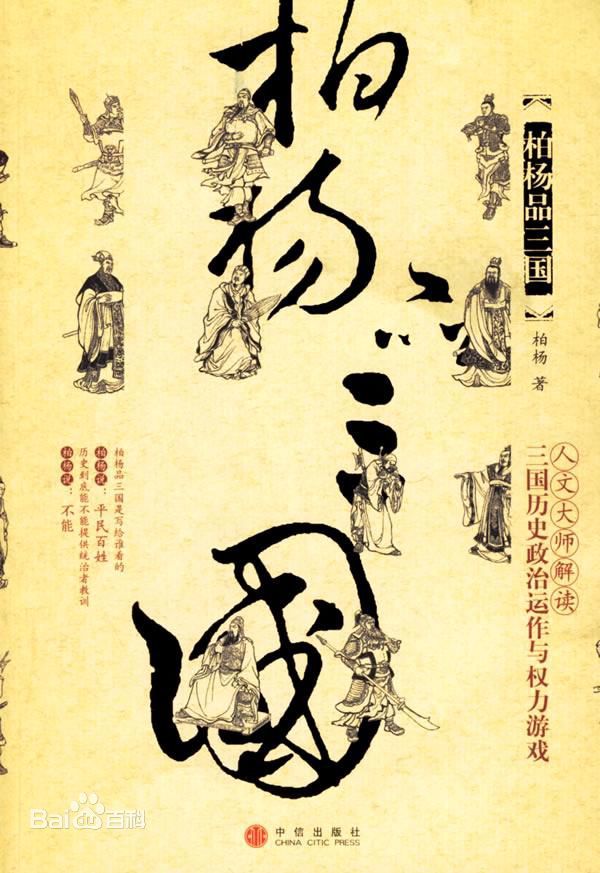 柏杨品三国
【柏杨品三国】
柏杨 著
人文大师解读
三国历史政治运作与权力游戏
柏杨品三国是写给谁看的
柏杨说：平民百姓
历史到底能不能提供统治者教训
柏杨说：不能
Bai百科
中信出版社
CHINA CITIC PRESS